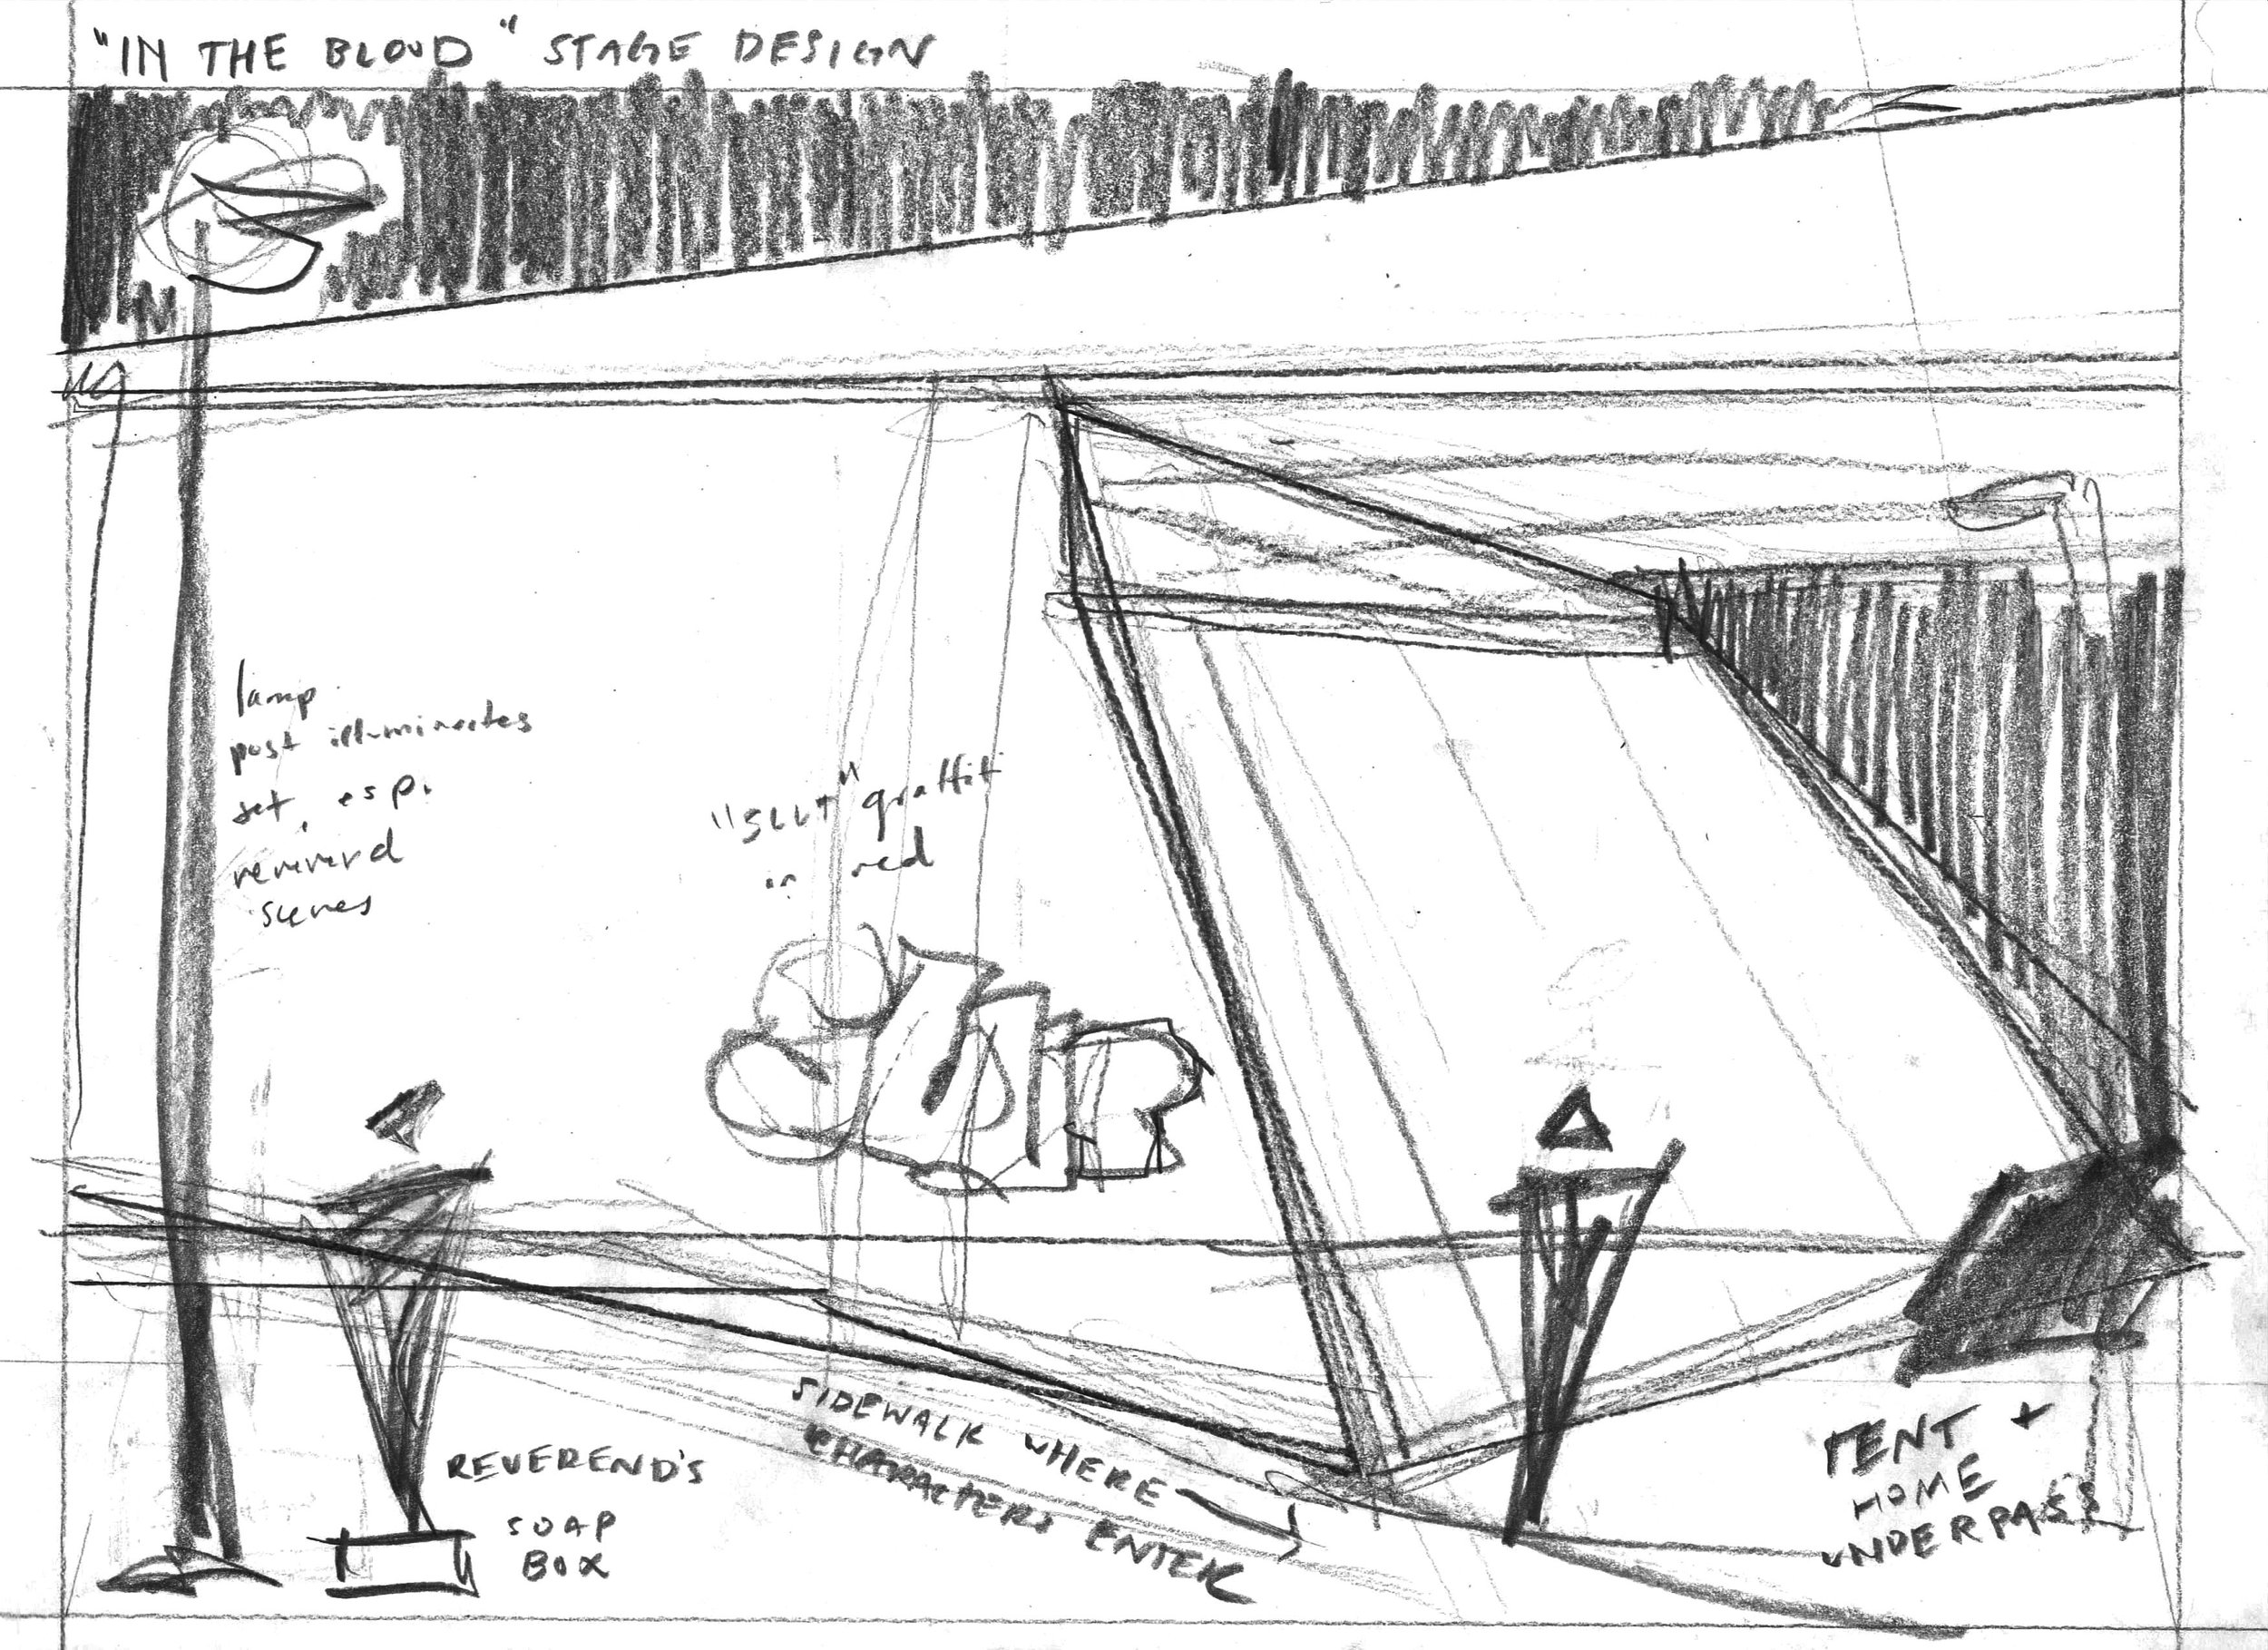 "IN THE BLOOD" STAGE DESIGN
lamp
post illuminates
set, esp.
reverend
scenes
"SLUT" graffiti
in red
SLUT
REVEREND'S
SOAP
BOX
SIDEWALK WHERE
CHARACTERS ENTER
TENT +
HOME
UNDERPASS